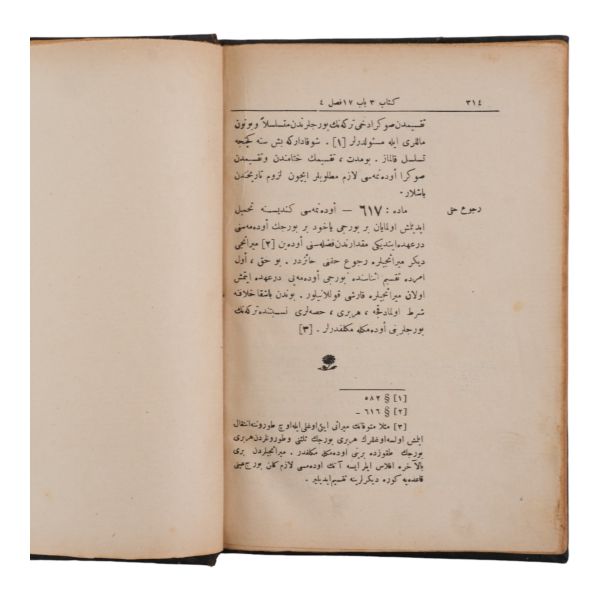 ٣١٤
كتاب ٣ باب ١٧ فصل ٤
تقسيمدن صوكرا دخى تركه‌نك بورجلرندن متسلسلاً و بوتون
ماللرى ايله مسئولدرلر [١] . شوقادارکه بش سنه كچنجه
تسلسل قالماز . بومدت ، تقسيمك ختامندن وتقسيمدن
صوكرا اوده‌نمه‌سى لازم مطلوبلر ايچون لزوم تاريخندن
باشلار .
رجوع حقى
ماده : ٦١٧ — اوده‌نمه‌سى كنديسنه تحميل
ايديلمش اولمايان بر بورجى ياخود بر بورجك اوده‌مه‌سنى
درعهده ايتديكى مقدارندن فضله‌سنى اوده‌ين [٢] ميراثجى
ديكر ميراثجيلره رجوع حقنى حائزدر . بو حق ، اول
امرده تقسيم اثناسنده بورجى اوده‌مه‌يى درعهده ايتمش
اولان ميراثجيلره قارشى قوللانيلور . بوندن باشقا خلافنه
شرط اولمادقجه ، هربرى ، حصه‌لرى نسبتنده تركه‌نك
بورجلرينى اوده‌مكله مكلفدرلر . [٣]
[١] § ٥٨٢
[٢] § ٦١٦ ـ
[٣] مثلا متوفانك ميراثى ايكى اوغلى ايله اوچ طوروننه انتقال
ايتمش اولسه اوغللرك هربرى بورجك ثلثنى وطورونلردن هربرى
بورجك طقوزده برينى اوده‌مكله مكلفدر . ميراثجيلردن برى
بالآخره افلاس ايلر ايسه آنك اوده‌مسى لازم كلن بورج عينى
قاعده‌يه كوره ديكرلرينه تقسيم ايديلير .